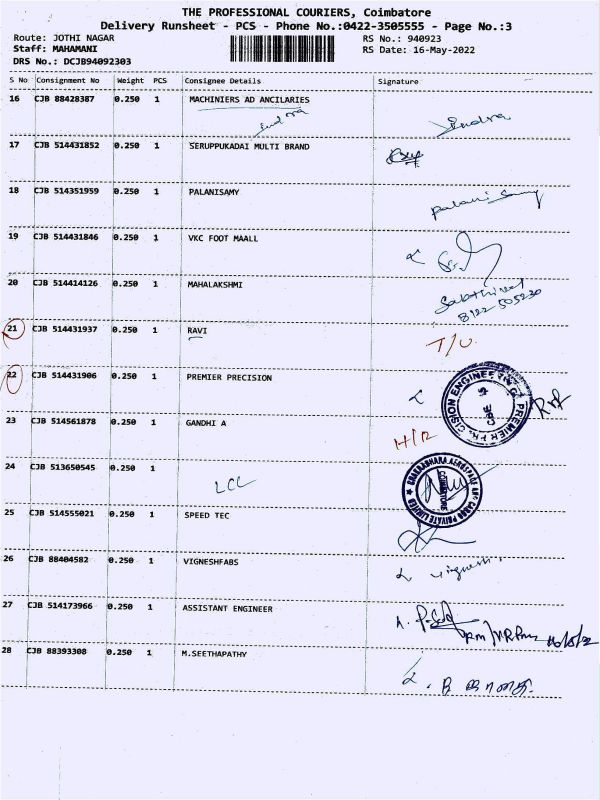 THE PROFESSIONAL COURIERS, Coimbatore
Delivery Runsheet - PCS - Phone No.:0422-3505555 - Page No.:3
Route: JOTHI NAGAR
RS No.: 940923
Staff: MAHAMANI
RS Date: 16-May-2022
DRS No.: DCJB94092303
S No Consignment No Weight PCS Consignee Details Signature
16 CJB 88428387 0.250 1 MACHINIERS AD ANCILARIES
Indra Indra
17 CJB 514431852 0.250 1 SERUPPUKADAI MULTI BRAND
18 CJB 514351959 0.250 1 PALANISAMY
Palanisamy
19 CJB 514431846 0.250 1 VKC FOOT MAALL
20 CJB 514414126 0.250 1 MAHALAKSHMI
Sakthivel
8122 505230
21 CJB 514431937 0.250 1 RAVI
T/U.
22 CJB 514431906 0.250 1 PREMIER PRECISION
PREMIER PRECISION ENGINEERING
CBE
23 CJB 514561878 0.250 1 GANDHI A
H/R
24 CJB 513650545 0.250 1
LCL
COIMBATORE
PRIVATE LIMITED
25 CJB 514555021 0.250 1 SPEED TEC
26 CJB 88404582 0.250 1 VIGNESHFABS
Vignesh
27 CJB 514173966 0.250 1 ASSISTANT ENGINEER
16/5/22
28 CJB 88393308 0.250 1 M.SEETHAPATHY